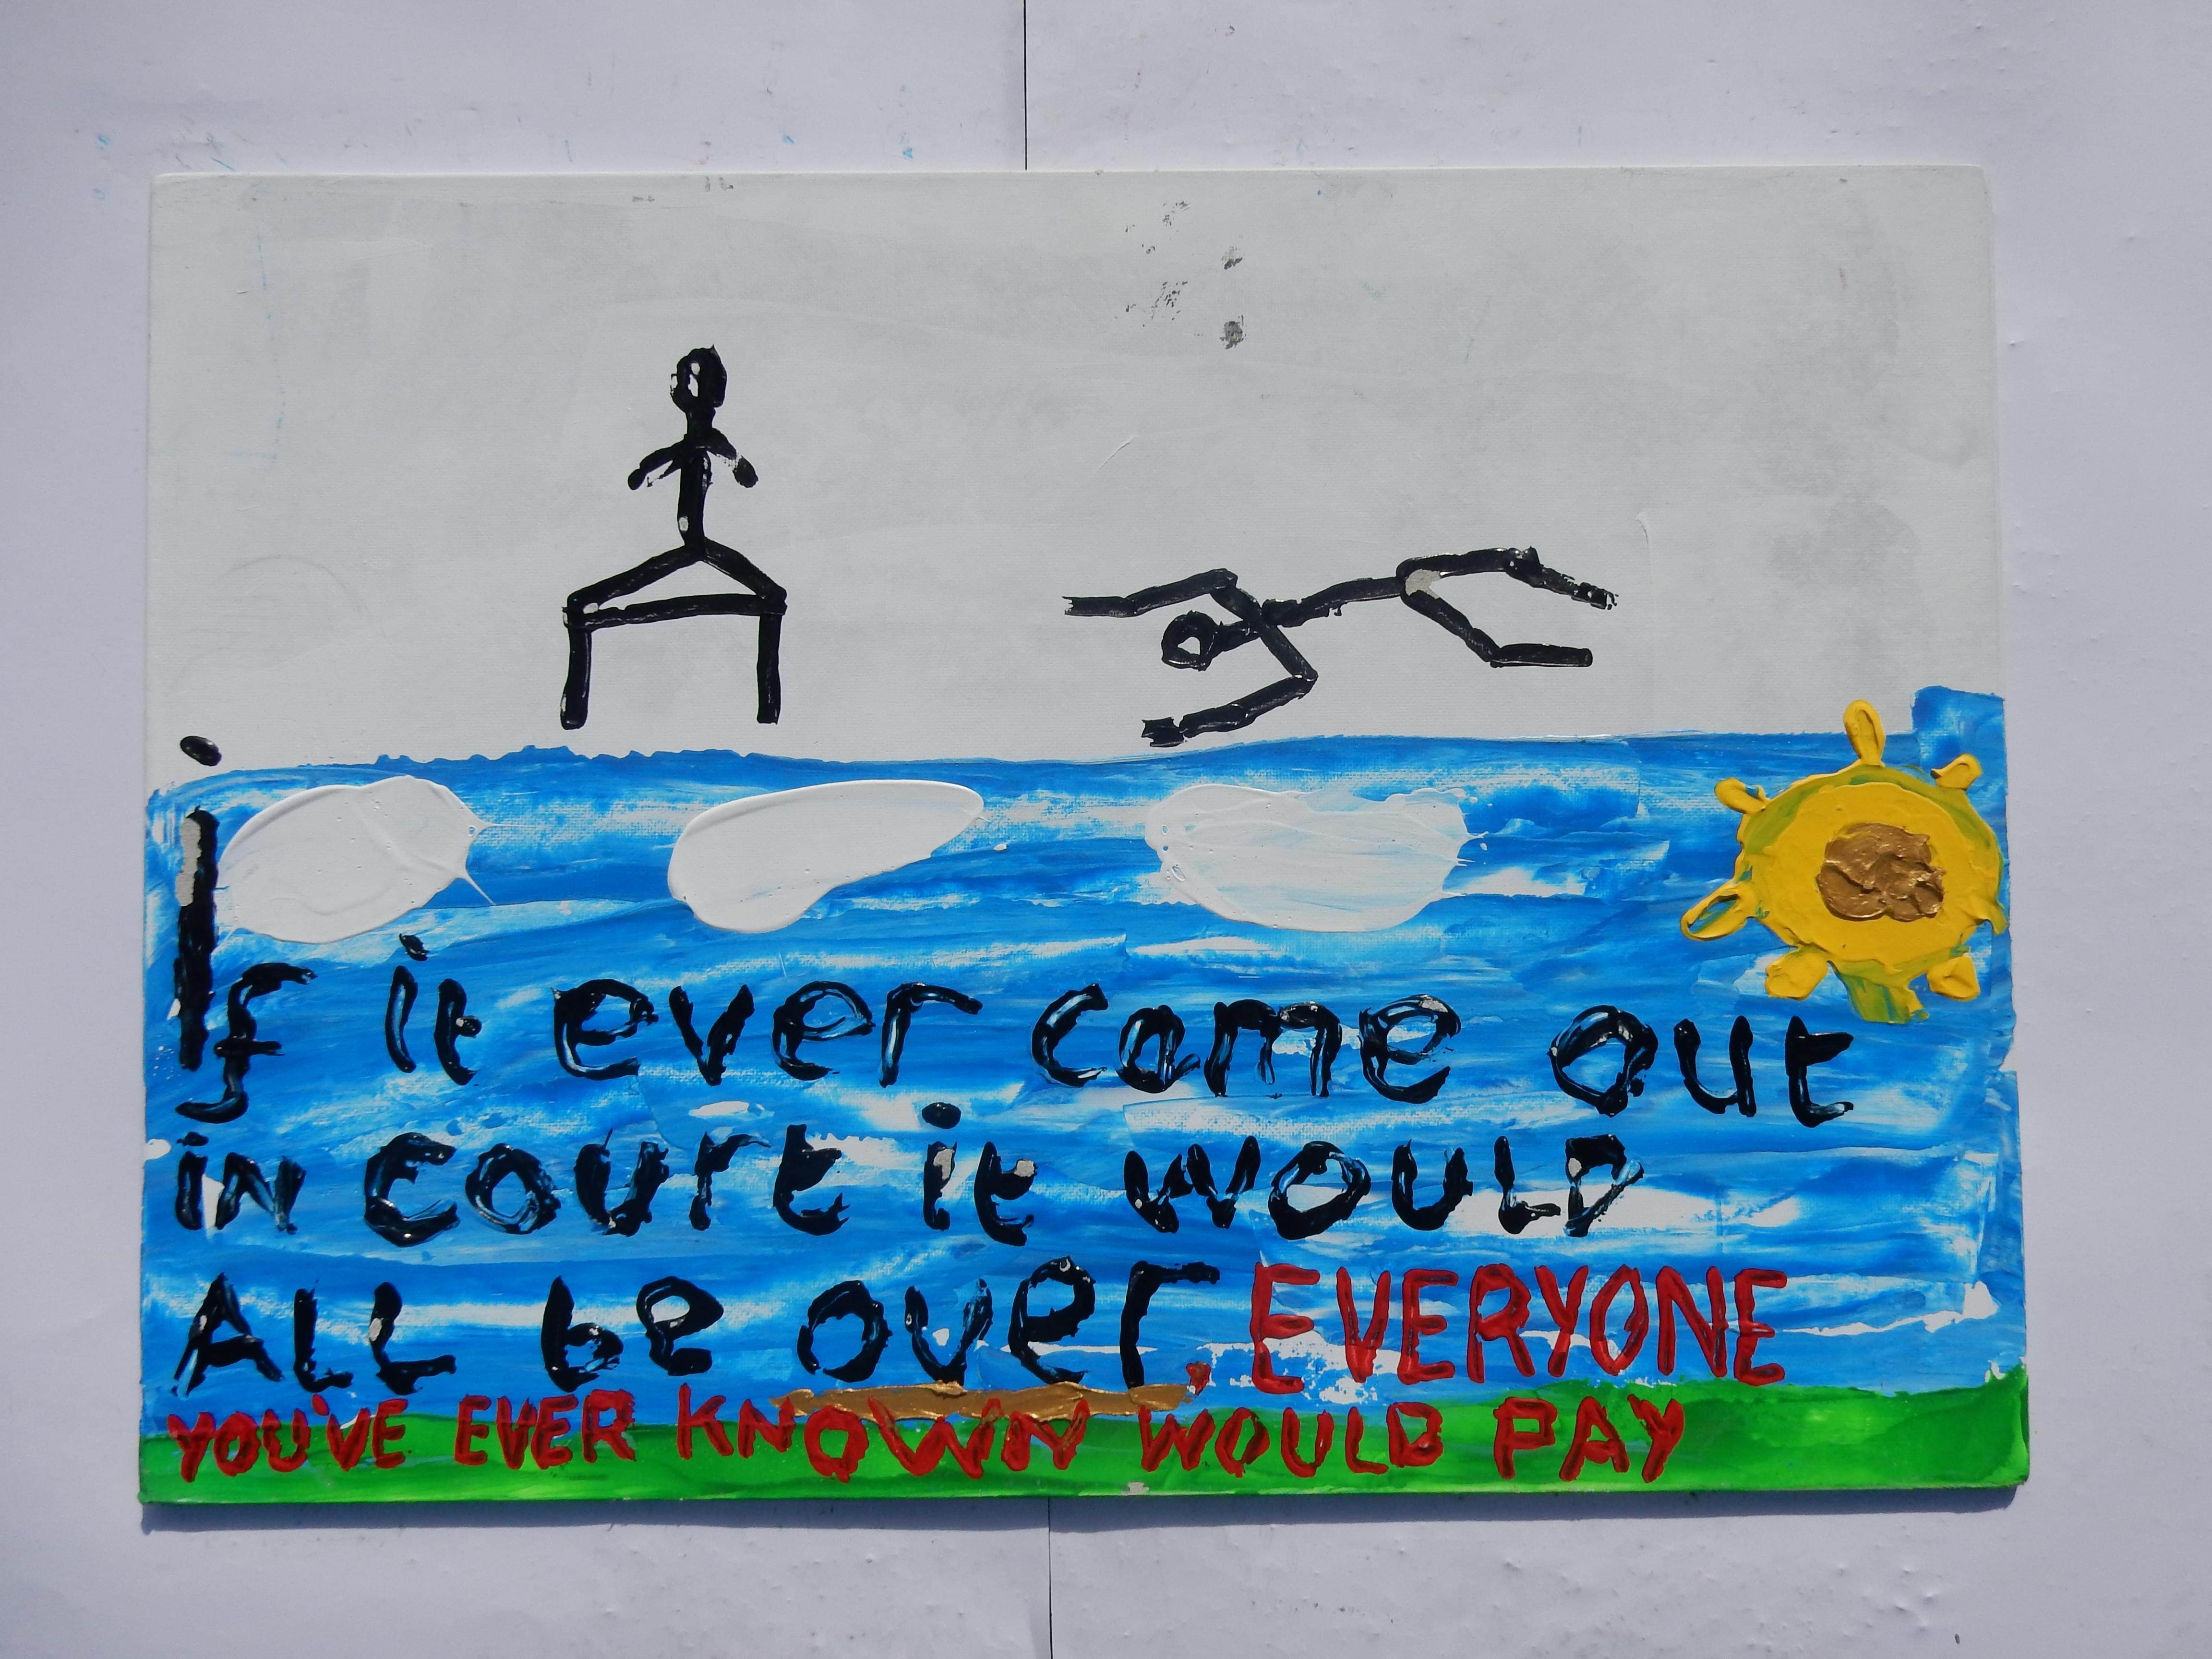 If it ever came out
in court it would
ALL be over, EVERYONE
YOU'VE EVER KNOWN WOULD PAY